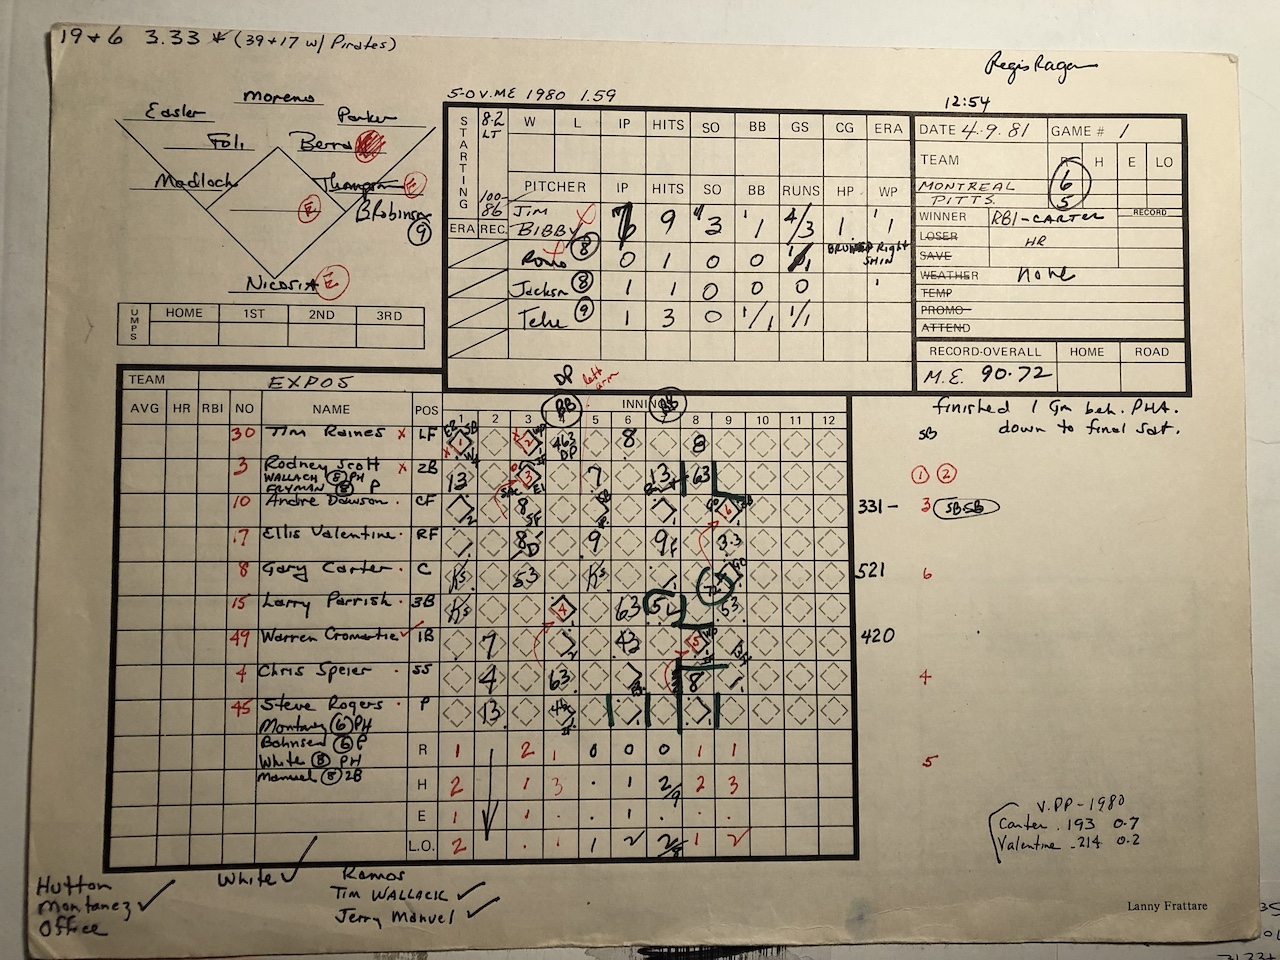 19 + 6 3.33 * (39+17 w/ Pirates)
Regis Ragan
5-0 v. ME 1980 1.59
12:54
Moreno
Easler
Parker
Foli
Berra
Madlock
Thompson E
E
B Robinson
9
Nicosia E
UMPS HOME 1ST 2ND 3RD
STARTING 8.2 LT W L IP HITS SO BB GS CG ERA
100-86 PITCHER IP HITS SO BB RUNS HP WP
ERA REC. JIM BIBBY 7 9 3 1 4/3 1 1
BRUISED Right SHIN
Romo 8 0 1 0 0
Jackson 8 1 1 0 0 0
Teke 9 1 3 0 1/1 1/1
DATE 4.9.81 GAME # 1
TEAM R H E LO
MONTREAL 6
PITTS. 5
WINNER RBI-CARTER RECORD
LOSER HR
SAVE
WEATHER none
TEMP
PROMO
ATTEND
RECORD-OVERALL HOME ROAD
M.E. 90-72
finished 1 Gm beh. PHA.
down to final Sat.
DP left arm
TEAM EXPOS
BB BB INNING
AVG HR RBI NO NAME POS 1 2 3 4 5 6 7 8 9 10 11 12
30 Tim Raines LF 463 DP 8 8 SB
3 Rodney Scott 2B 13 3 7 13 63 1 2
WALLACH 8 PH
FRYMAN 8 P
10 Andre Dawson CF 8 SF 331- 3 SB SB
17 Ellis Valentine RF 8 9 9F 3-3
8 Gary Carter C Ks 53 Ks 521 6
15 Larry Parrish 3B Ks 4 63 5L 53
49 Warren Cromartie 1B 7 43 5 420
4 Chris Speier SS 4 63 8 4
45 Steve Rogers P 13
Montanez 6 PH
Bahnsen 6 P R 1 2 1 0 0 0 1 1
White 8 PH 5
Manuel 8 2B H 2 1 3 . 1 2/9 2 3
E 1 1 . . 1 . . .
L.O. 2 . 1 1 2 2/8 1 2
V. PP - 1980
Carter .193 0-7
Valentine .214 0-2
Hutton
Montanez
Office
White
Ramos
Tim WALLACK
Jerry Manuel
Lanny Frattare